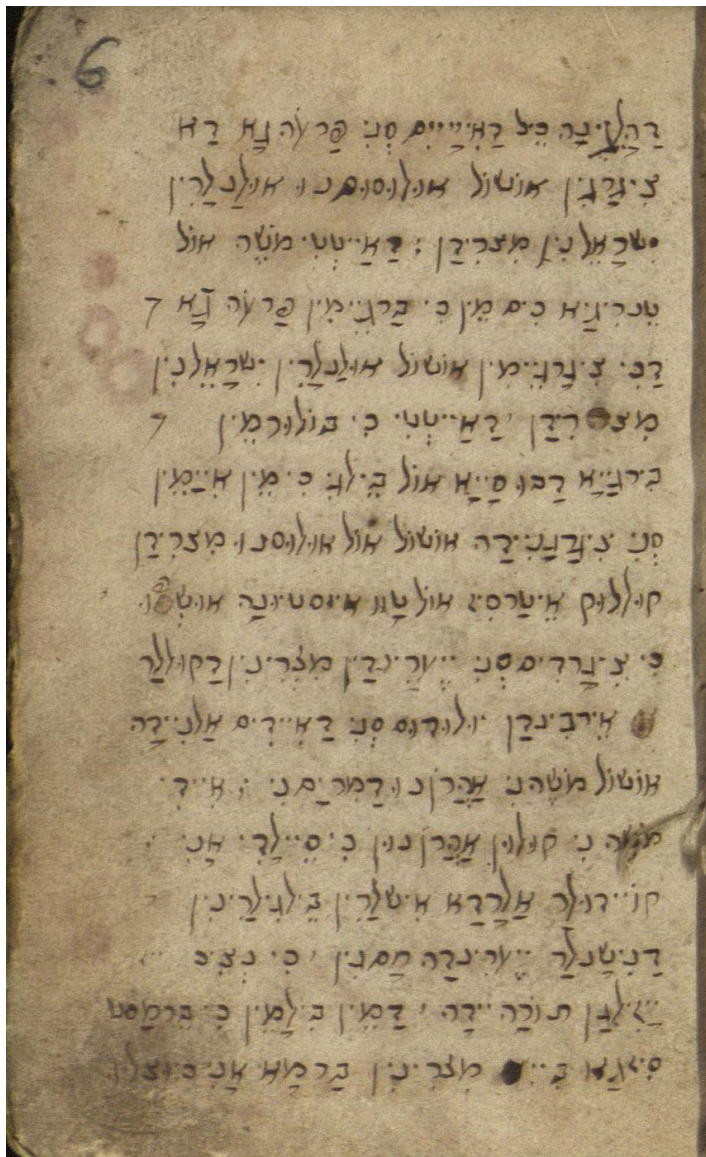 6
דַהַלֵינָה כֵּיל דַאִייֵיִים סְנִי פַרעֹה גָא דַא
צִיגַרגִין אוֹשוֹל אוּלוּסוּמנוּ אוּלַנלַרִין
יִשרָאֵלנִין מִצרִדַן : דַאַייטטִי מֹשֶה אוֹל
טֵנרִיגָיא כִים מֵין כִי בַרגֵיימִין פַרעֹה גָא ד
דַכִי צִיגַרגֵיימִין אוֹשוֹל אוּלַנלַרִין יִשרָאֵלנִין
מִצרִדַן דַאַייטְטִי כִי בוֹלוּרמֵין ד
בִירגָייא דַבוּ סָייָא אוֹל בֵילגִי כִי מֵין אִייַמִין
סְנִי צִיגַרגַנִיידָה אוֹשוֹל אוֹל אוּלוּסנוּ מִצרִדַן
קוּללוּק אֵיטַרסִיז אוֹל טָוו אִיוּסטיוּנָה אוּשְטוּ
כִי צִיגַרדִימסְנִי יֵירִינדַן מִצרִינִין דַקוּללַר
אֵירבִינדַן יוּלוּדוּם סְנִי דַאִיידִים אַלנִיידָה
אוֹשוֹל מֹשֶהנִי אַהֲרֹןנוּ דַמִריָםנִי : אִיידִי
מֹשֶה נִי קוּלוּן אַהֲרֹןנוּן כִי סֵיילַדִי אָנִי
קוֹיידוּלַר אַלַרדָא אִישלַרִין בֵילגִילַרִינִין
דַנִישַנלַר יֵירִינדָה חָםנִין כִי נֵצִיכ
יַזִילגַן תוֹרָה יידָה דַמֵין בִילָמֵין כִי בֵרמַסט
סִיזגָא בִייי מִצרִינִין בַרמָא אָנִי